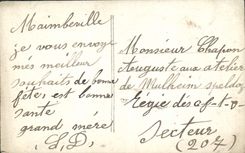 Maimbeville
je vous envoy
mes meilleur
souhaits de bonne
fête, est bonne
sante
grand mère
Monsieur Chapon
Auguste aux atelier
de Mulheim speldorf
Régie des
Secteur
(204)